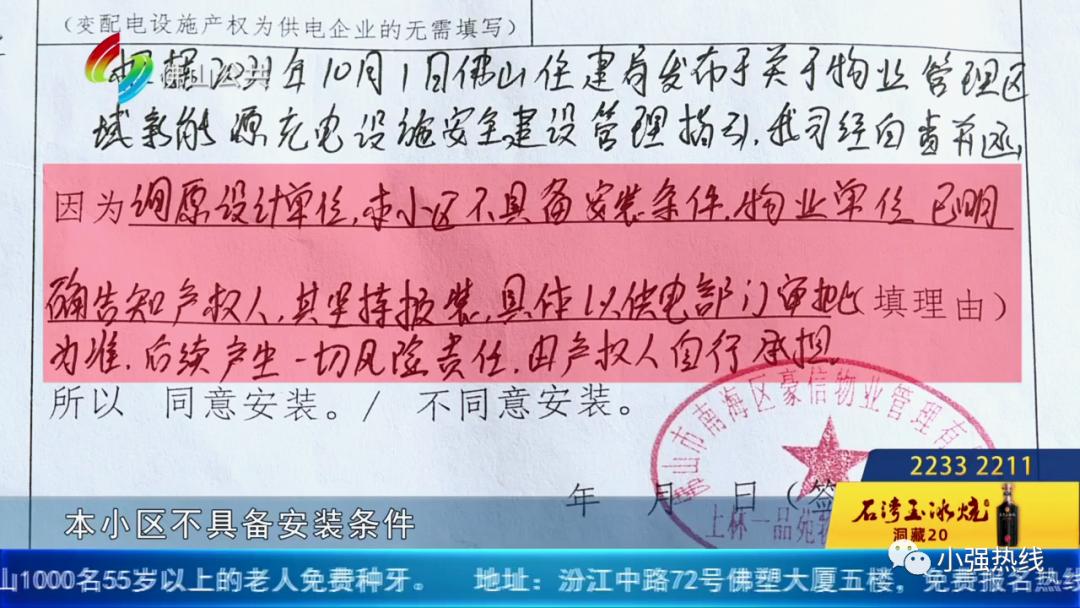 （变配电设施产权为供电企业的无需填写）
根据2021年10月1日佛山住建局发布于关于物业管理区
域新能源充电设施安全建设管理指引，我司经自查并函
因为 询原设计单位，本小区不具备安装条件，物业单位已明
确告知产权人，其坚持报装，具体以供电部门审批（填理由）
为准，后续产生一切风险责任，由产权人自行承担。
所以 同意安装。/ 不同意安装。
佛山市南海区豪信物业管理有
上林一品苑
年 月 日（签
2233 2211
石湾玉冰烧
洞藏20
本小区不具备安装条件
小强热线
山1000名55岁以上的老人免费种牙。 地址：汾江中路72号佛塑大厦五楼，免费报名热线